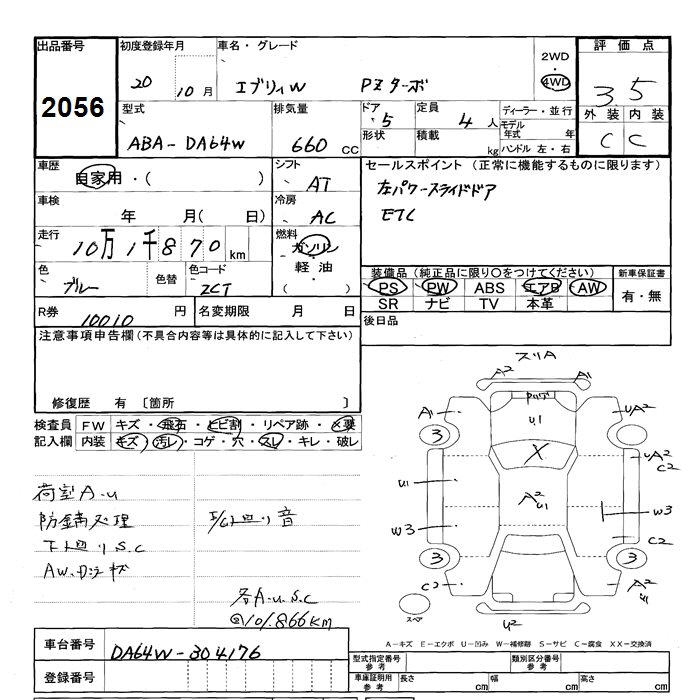 出品番号 初度登録年月 車名・グレード 2WD 評価点
2056 20 10月 エブリィW PZターボ 4WD 3.5
型式 排気量 ドア 定員 ディーラー・並行 外装 内装
ABA-DA64W 660 CC 5 4人 モデル年式 年 C C
形状 積載 kg ハンドル 左・右
車歴 自家用・( ) シフト AT セールスポイント (正常に機能するものに限ります)
車検 年 月( 日) 冷房 AC 左パワースライドドア
ETC
走行 10万1千870km 燃料 ガソリン 軽油・( )
色 ブルー 色替 色コード ZCT
装備品 (純正品に限り○をつけてください) 新車保証書
PS PW ABS エアB AW 有・無
SR ナビ TV 本革
R券 10010円 名変期限 月 日 後日品
注意事項申告欄(不具合内容等は具体的に記入して下さい)
修復歴 有 〔箇所 〕
検査員 FW キズ・飛石・ヒビ割・リペア跡・×要
記入欄 内装 キズ・汚レ・コゲ・穴・スレ・キレ・破レ
荷室A・U
防錆処理 E/G廻り音
下廻りS.C
AW.ロジ
各A.U.S.C
101.866KM
スリA
A2 A1
U1
A1 UA2
3 3
X
UA2
C2
U1
A2
U1
W3 W3
C2
3 3
C2 A2
U1
スペア
U2
A-キズ E-エクボ U-凹み W-補修跡 S-サビ C-腐食 XX-交換済
車台番号 DA64W-304176
登録番号
型式指定番号 参考 類別区分番号 参考
車庫証明用 参考 長さ cm 幅 cm 高さ cm